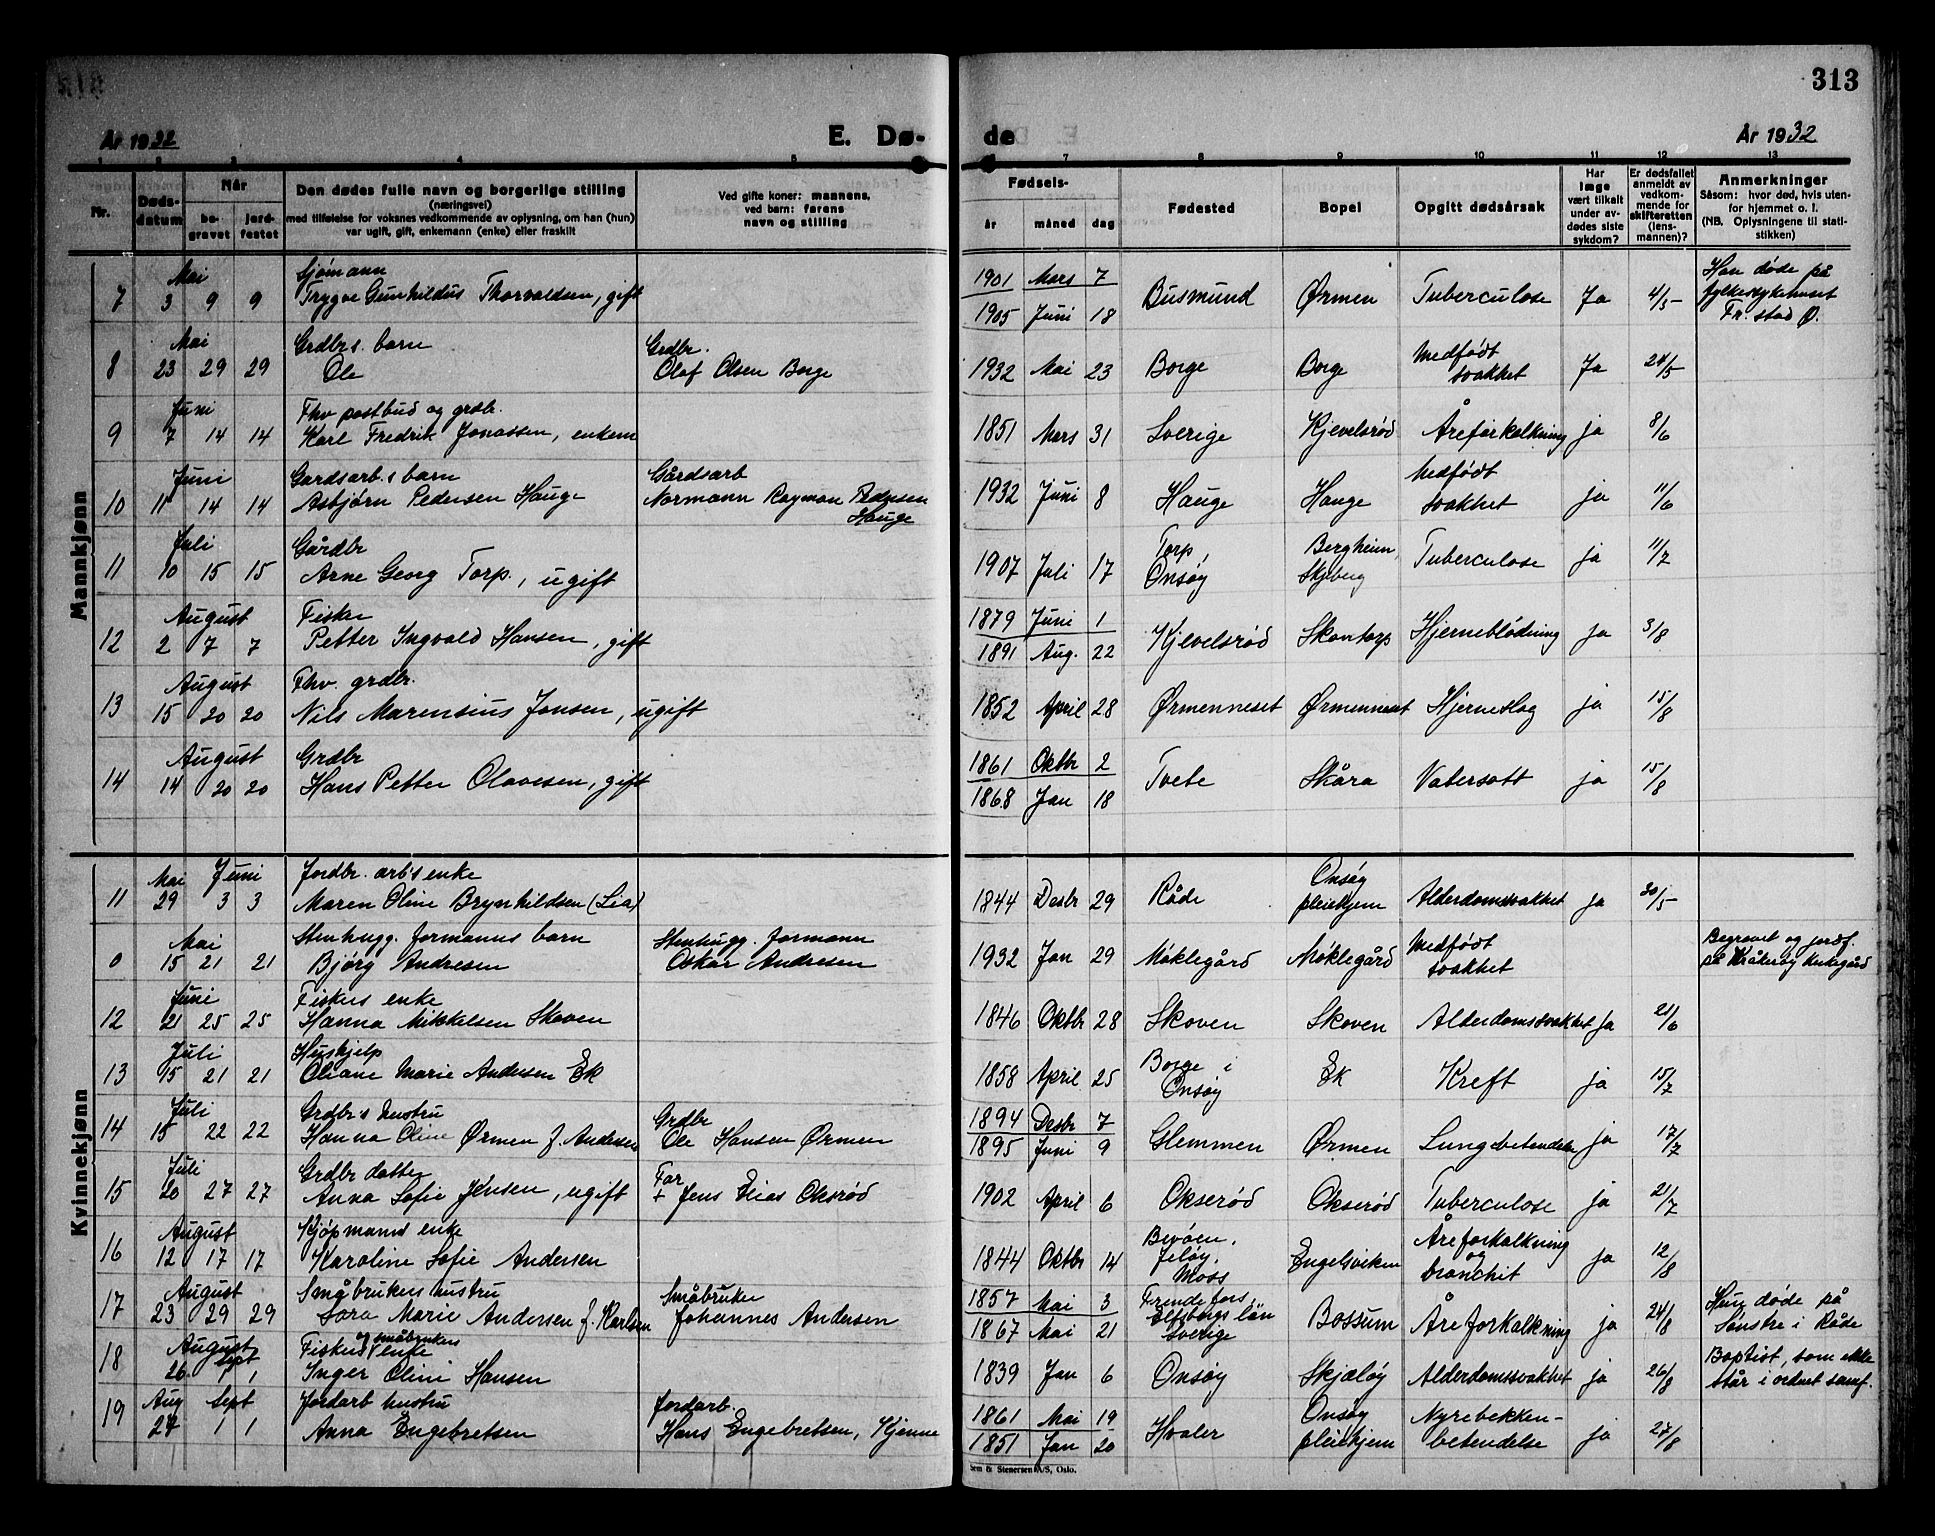 313
År 1932 E. Dø- de År 1932
1 2 3 4 5 7 8 9 10 11 12 13
Nr.
Døds-
datum
Når
be-
gravet
jord-
festet
Den dødes fulle navn og borgerlige stilling
(næringsvei)
med tilføielse for voksnes vedkommende av oplysning, om han (hun)
var ugift, gift, enkemann (enke) eller fraskilt
Ved gifte koner: mannens,
ved barn: farens
navn og stilling
Fødsels-
år måned dag
Fødested
Bopel
Opgitt dødsårsak
Har
læge
vært tilkalt
under av-
dødes siste
sykdom?
Er dødsfallet
anmeldt av
vedkom-
mende for
skifteretten
(lens-
mannen)?
Anmerkninger
Såsom: hvor død, hvis uten-
for hjemmet o. l.
(NB. Oplysningene til stati-
stikken)
Mannkjønn
Mai Sjømann 1901 Mars 7 Han døde på
7 3 9 9 Trygve Gunhildus Thorvaldsen, gift Busmund Ørmen Tuberculose Ja 4/5 fylkessykehuset
1905 Juni 18 Fr.stad Ø.
Mai Grdbr.s barn Grdbr. Medfødt
8 23 29 29 Ole Olaf Olsen Borge 1932 Mai 23 Borge Borge svakhet Ja 24/5
Juni Fhv postbud og grdbr.
9 7 14 14 Karl Fredrik Jonassen, enkem 1851 Mars 31 Sverige Kjevelsrød Åreforkalkning ja 8/6
Juni Gardsarb.s barn Gårdsarb Medfødt
10 11 14 14 Asbjørn Pedersen Hauge Normann Raymon Pedersen 1932 Juni 8 Hauge Hauge svakhet ja 11/6
Hauge
Juli Gårdbr Torp, Bergheim,
11 10 15 15 Arne Georg Torp., ugift 1907 Juli 17 Onsøy Skjeberg Tuberculose ja 11/7
August Fisker 1879 Juni 1
12 2 7 7 Petter Ingvald Hansen, gift Kjevelsrød Skontorp Hjerneblødning ja 3/8
1891 Aug. 22
August Fhv. grdbr.
13 15 20 20 Nils Marensius Jensen, ugift 1852 April 28 Ørmenneset Ørmenneset Hjerneslag ja 15/8
August Grdbr 1861 Oktbr 2
14 14 20 20 Hans Petter Olavesen, gift Tvete Skåra Vatersott ja 15/8
1868 Jan 18
Kvinnekjønn
Mai Juni Jordbr. arb's enke Onsøy
11 29 3 3 Maren Oline Brynhildsen (Lia) 1844 Desbr 29 Råde pleiehjem Alderdomssvakhet ja 30/5
Mai Stenhugg. formanns barn Stenhugg. formann Medfødt Begravet og jordf.
0 15 21 21 Bjørg Andresen Oskar Andresen 1932 Jan 29 Møklegård Møklegård svakhet på Kråkerøy kirkegård
Juni Fiskers enke
12 21 25 25 Hanna Mikkelsen Skoven 1846 Oktbr 28 Skoven Skoven Alderdomssvakhet ja 21/6
Juli Huskjelp Borge i
13 15 21 21 Oliane Marie Andersen Ek 1858 April 25 Onsøy Ek Kreft ja 15/7
Juli Grdbr's hustru Grdbr 1894 Desbr 7
14 15 22 22 Hanna Oline Ørmen f. Andersen Ole Hansen Ørmen Glemmen Ørmen Lungebetendelse ja 17/7
1895 Juni 9
Juli Grdbr datter Far
15 20 27 27 Anna Sofie Jensen, ugift + Jens Elias Okserød 1902 April 6 Okserød Okserød Tuberculose ja 21/7
August Kjøpmanns enke Bevøen, Åreforkalkning
16 12 17 17 Karoline Sofie Andersen 1844 Oktbr 14 Jeløy, Moss Engelsviken og bronchit ja 12/8
August Småbrukers hustru Småbruker 1857 Mai 3 Frendefors, Hun døde på
17 23 29 29 Lora Marie Andersen f. Karlsen Johannes Andersen Elfsborgs län Bossum Åreforkalkning ja 24/8 Sønstre i Råde
1867 Mai 21 Sverige
August Sept Fiskers og småbrukers enke Baptist, som ikke
18 26 1 1 Inger Oline Hansen 1839 Jan 6 Onsøy Skjæløy Alderdomssvakhet ja 26/8 står i ordnet samf.
Aug Sept Jordarb hustru Jordarb. 1861 Mai 19 Onsøy Nyrebekken-
19 27 1 1 Anna Engebretsen Hans Engebretsen, Kjenne Hvaler pleiehjem betendelse ja 27/8
1851 Jan 20
Sem & Stenersen A/S, Oslo.